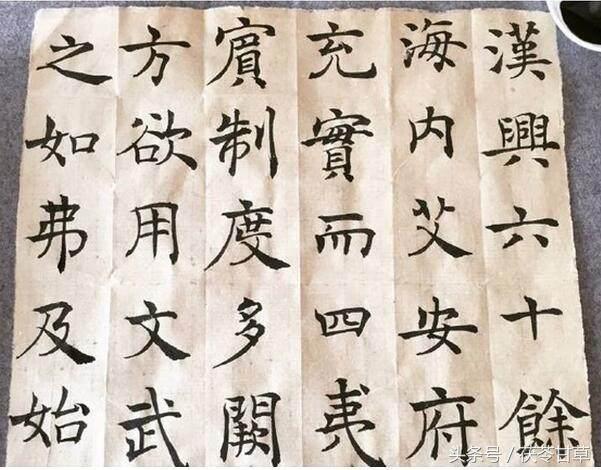 漢興六十餘
海內艾安府
充實而四夷
賔制度多闕
方欲用文武
之如弗及始
头条号 / 茯苓甘草